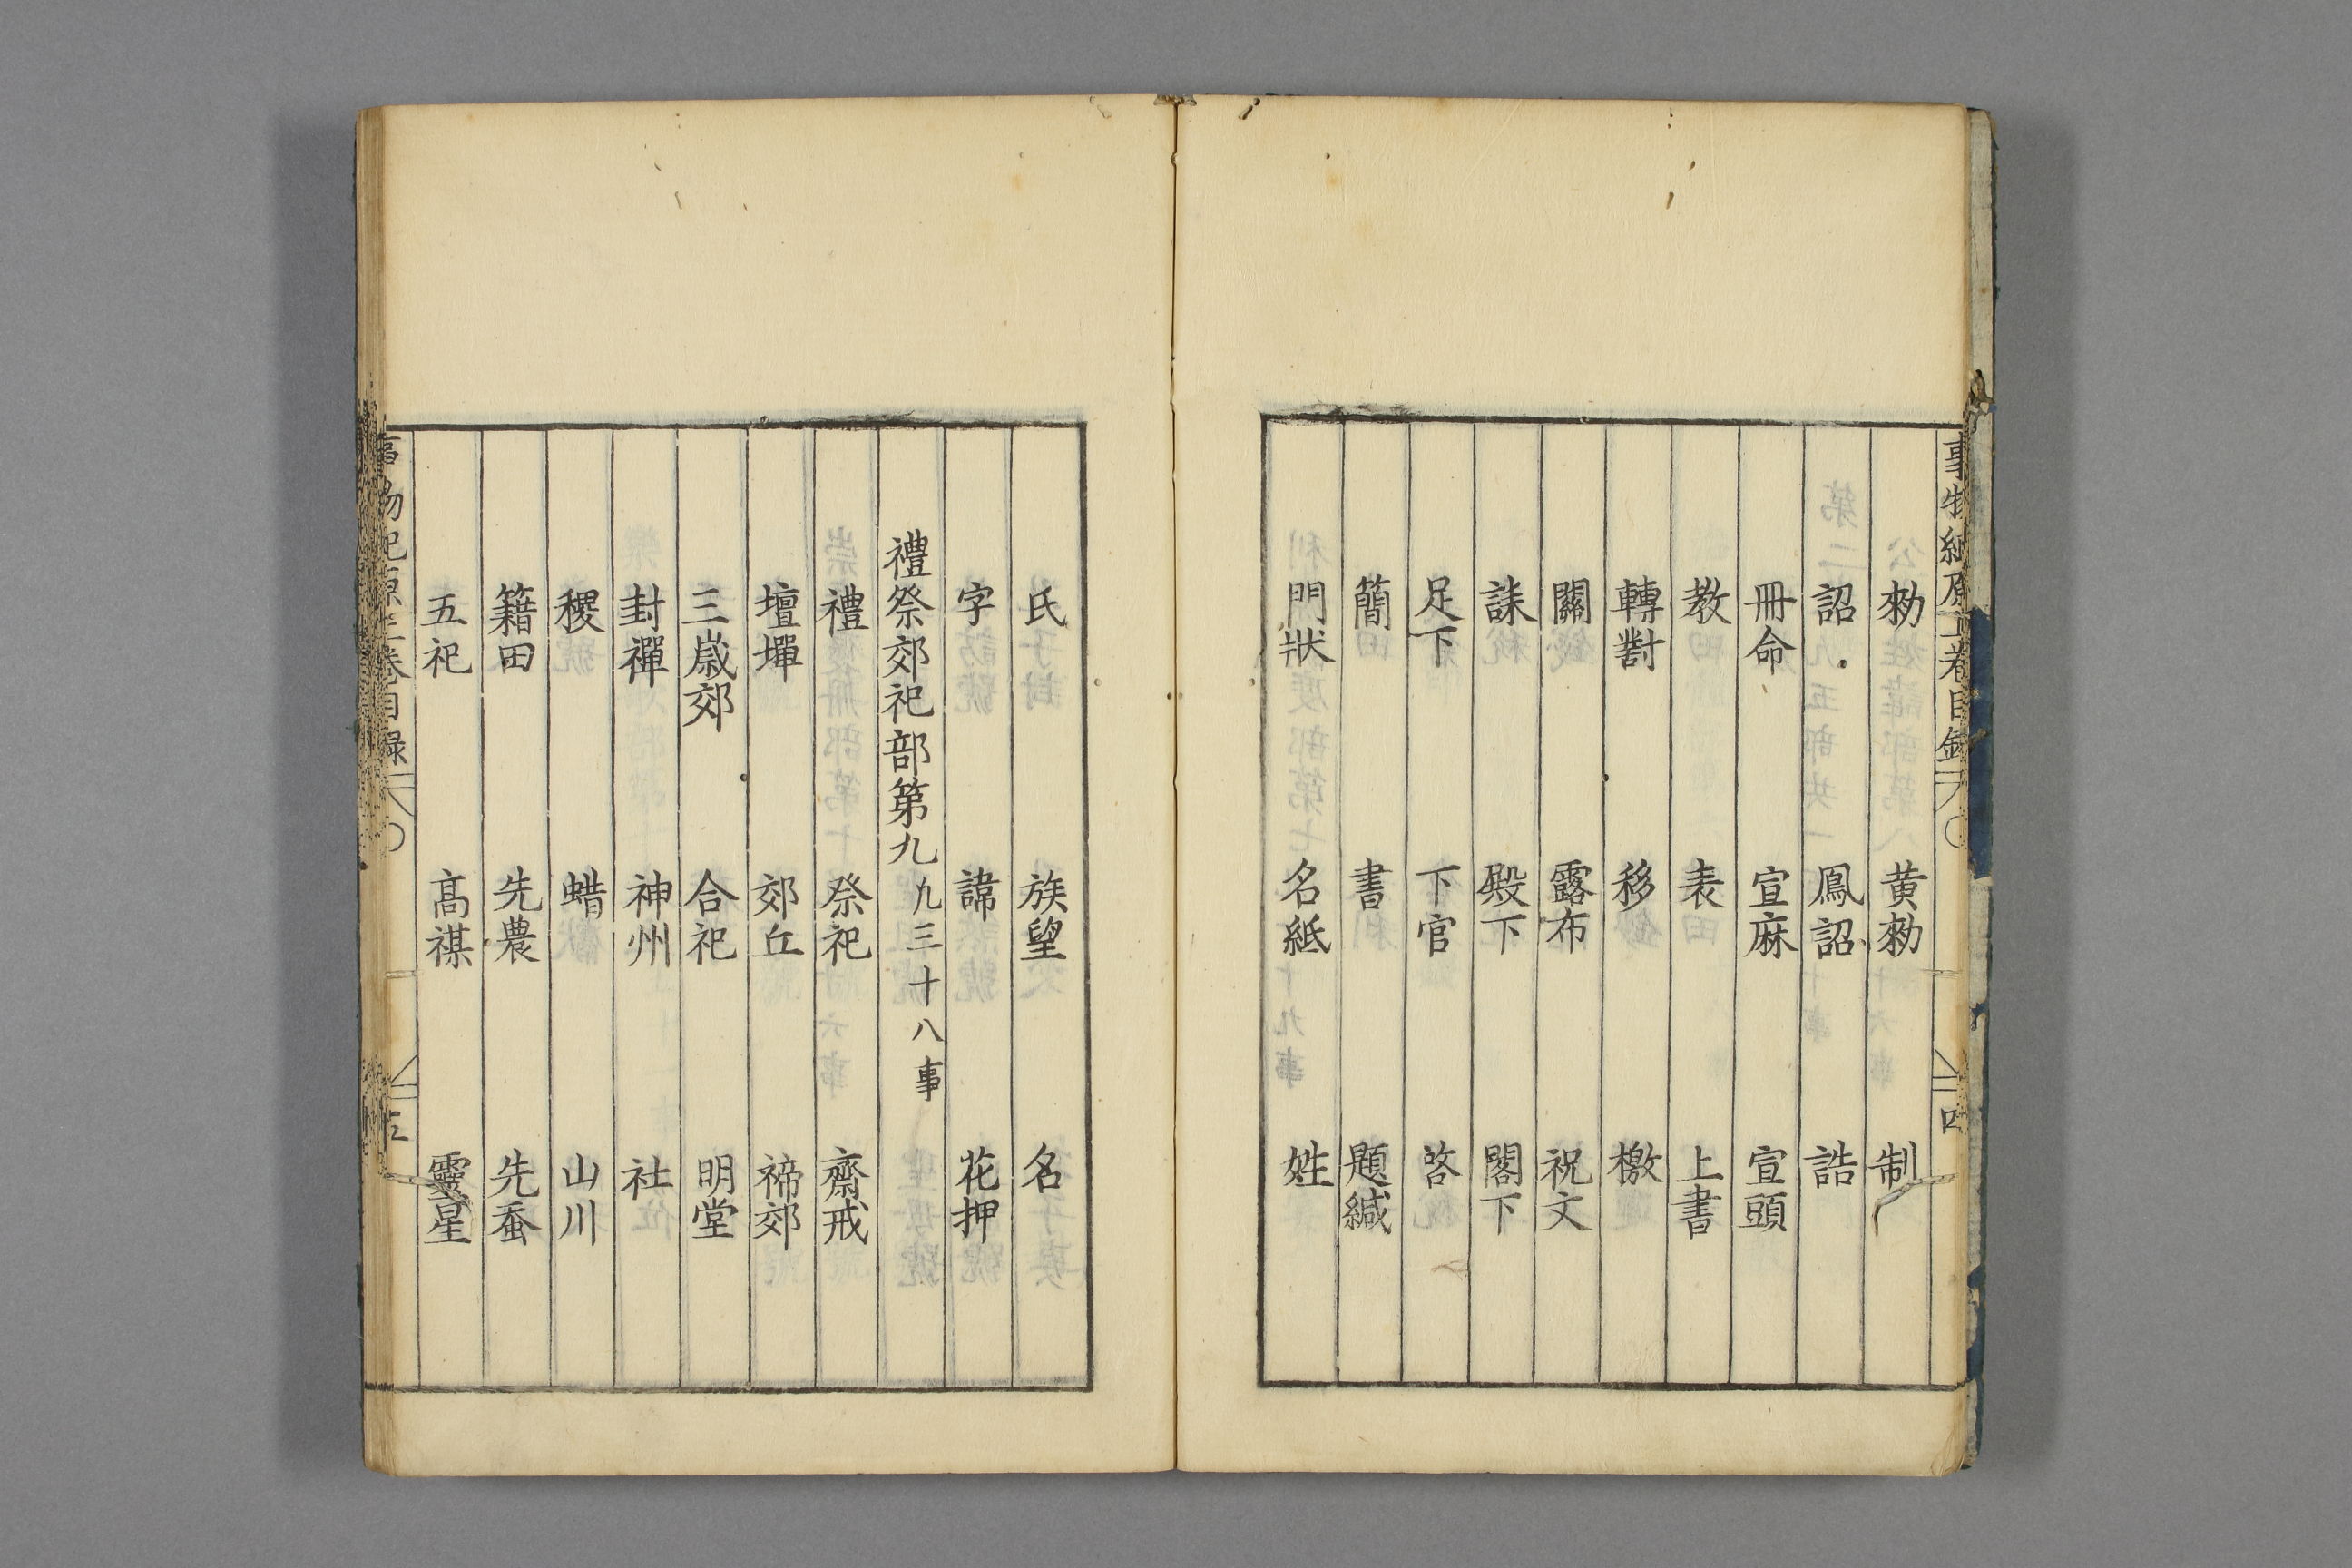 勑 黄勑 制
詔 鳳詔 誥
冊命 宣麻 宣頭
教 表 上書
轉對 移 檄
關 露布 祝文
誄 殿下 閣下
足下 下官 啓
簡 書 題緘
門狀 名紙 姓
氏 族望 名
字 諱 花押
禮祭郊祀部第九 九三十八事
禮 祭祀 齋戒
壇墠 郊丘 禘郊
三嵗郊 合祀 明堂
封禪 神州 社
稷 蜡 山川
籍田 先農 先蚕
五祀 髙禖 靈星